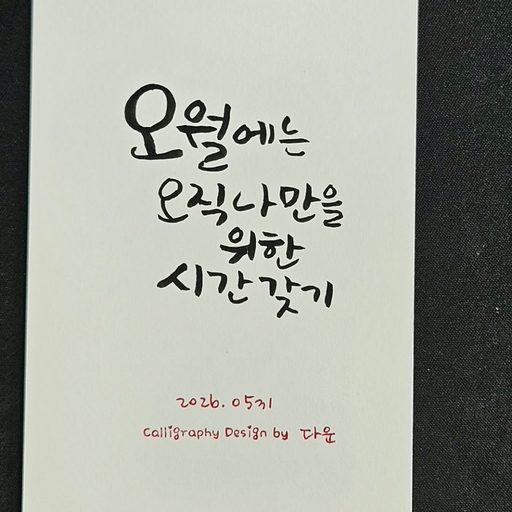 오월에는
오직 나만을
위한
시간 갖기
2026. 05 31
Calligraphy Design by 다운